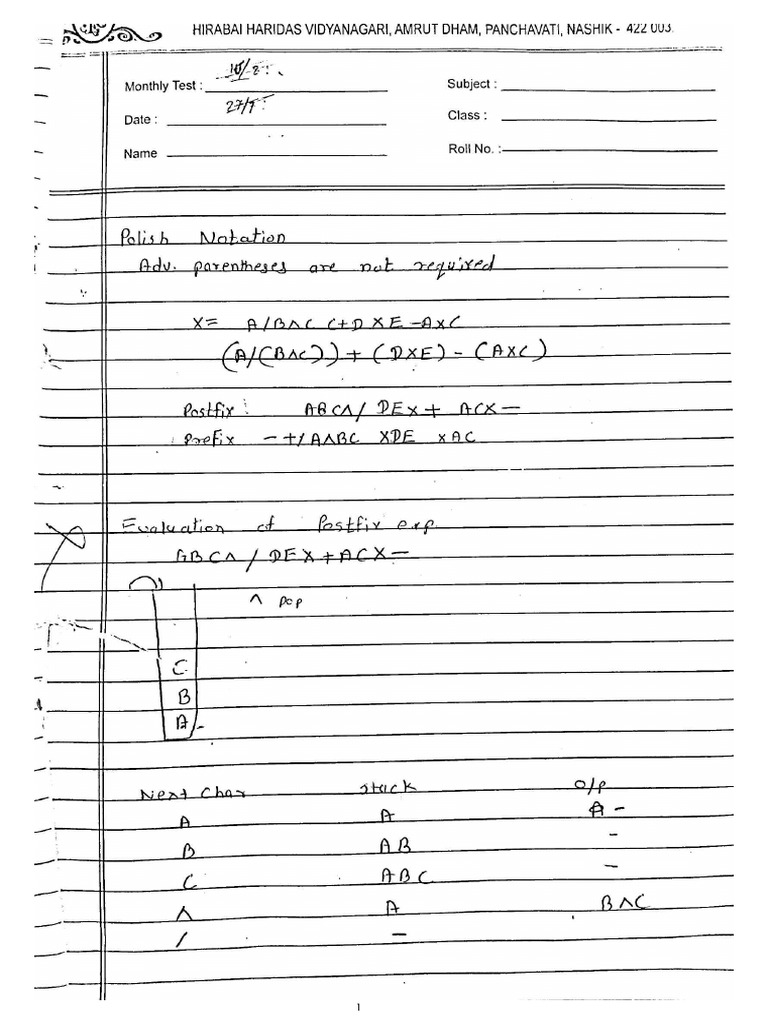 HIRABAI HARIDAS VIDYANAGARI, AMRUT DHAM, PANCHAVATI, NASHIK - 422 003.
Monthly Test :
Subject :
Date :
Class :
Name
Roll No. :
Polish Notation
Adv. parentheses are not required
X= A/B^C C+D X E -AxC
(A/(B^C)) + (DXE) - (AXC)
Postfix : ABC^/ DEX+ ACX-
Prefix -+/A^BC XDE XAC
Evaluation of Postfix exp.
ABC^/DEX+ACX-
^ pop
C
B
A
Next Char stack O/P
A A A -
B AB -
C ABC -
^ A B^C
/ -
1